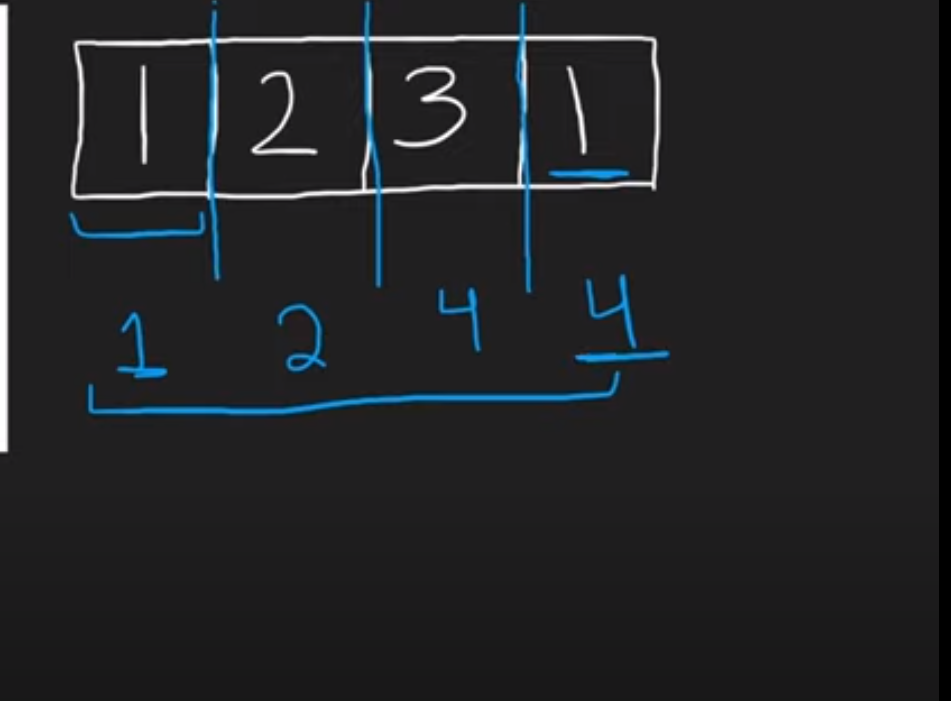 1 2 3 1
1 2 4 4